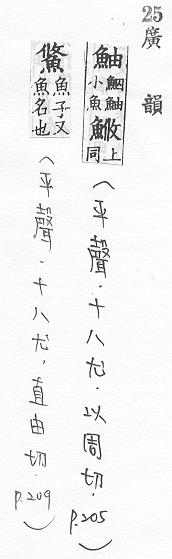 25
廣韻
鮋 鮋小魚 上同
(平聲.十八尤.以周切.P.205)
魚子又魚名也
(平聲.十八尤,直由切.P.209)